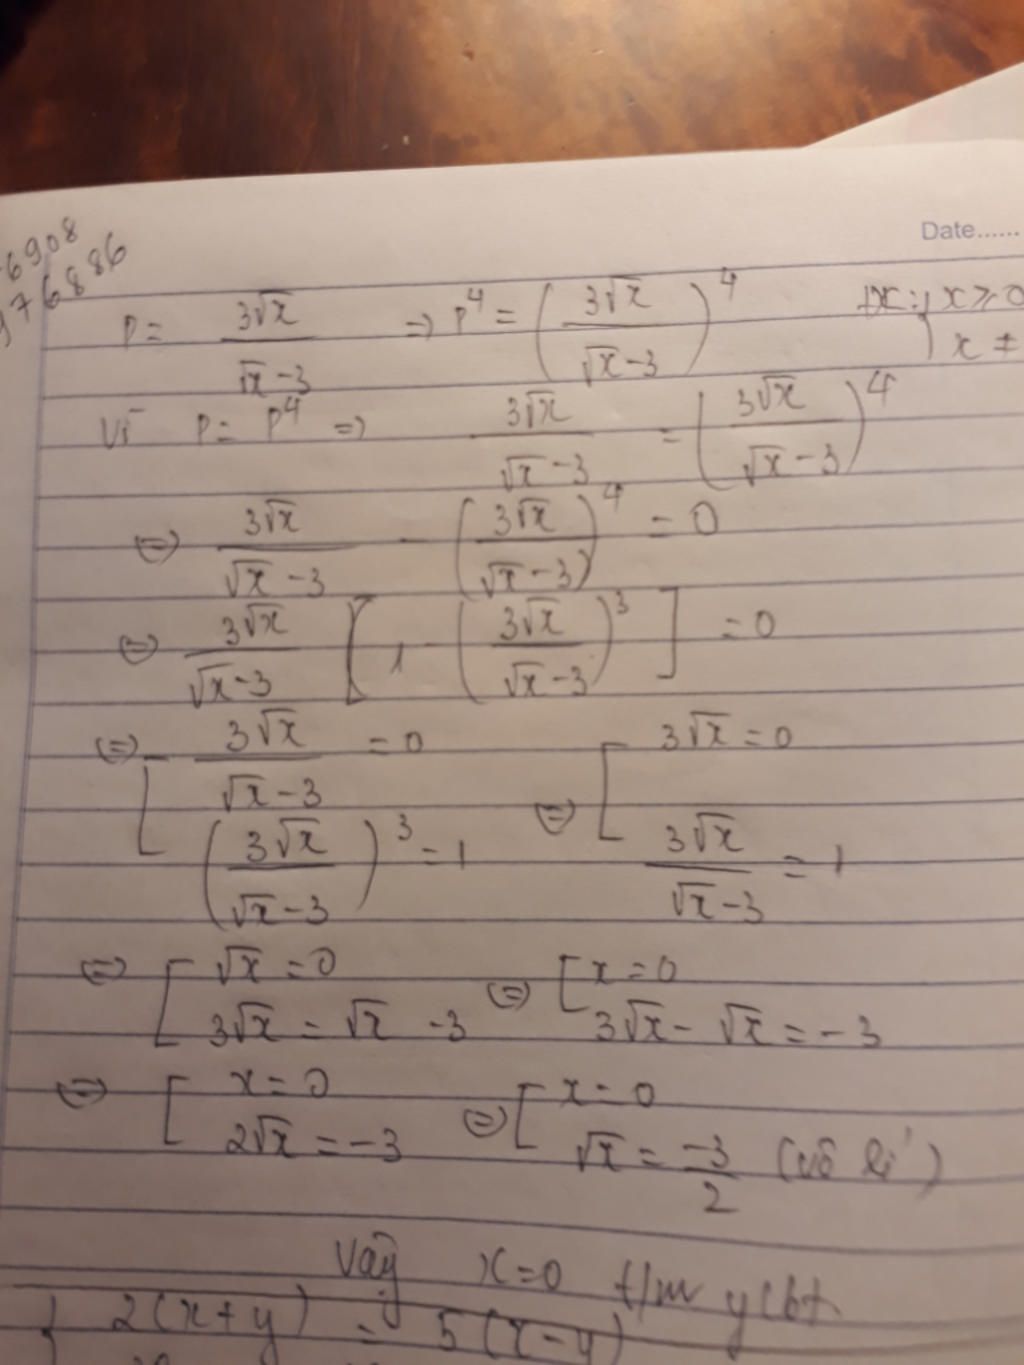 6908
76886
Date......
P = 3√x / (√x - 3) => P⁴ = (3√x / (√x - 3))⁴ x ⩾ 0
x ≠
Vì P = P⁴ => 3√x / (√x - 3) = (3√x / (√x - 3))⁴
<=> 3√x / (√x - 3) - (3√x / (√x - 3))⁴ = 0
<=> 3√x / (√x - 3) [1 - (3√x / (√x - 3))³] = 0
<=> [ 3√x / (√x - 3) = 0 <=> [ 3√x = 0
(3√x / (√x - 3))³ = 1 3√x / (√x - 3) = 1
<=> [ √x = 0 <=> [ x = 0
3√x = √x - 3 3√x - √x = -3
<=> [ x = 0 <=> [ x = 0
2√x = -3 √x = -3/2 (vô lí)
Vậy x = 0 t/m ycbt
{ 2(x + y) = 5(x - y)